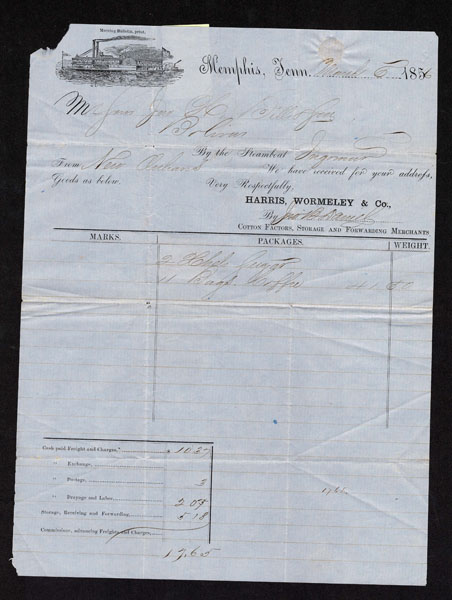 Morning Bulletin, print.
Memphis, Tenn. March 6 1856
M
Bolivar
By the Steamboat Ingomar
From New Orleans We have received for your address,
Goods as below. Very Respectfully,
HARRIS, WORMELEY & Co.,
By
COTTON FACTORS, STORAGE, AND FORWARDING MERCHANTS
MARKS. PACKAGES. WEIGHT.
2 Hhds Sugar
11 Bags Coffee
Cash paid Freight and Charges, $ 10.37
" Exchange,
" Postage, 3
" Drayage and Labor, 2 05
Storage, Receiving and Forwarding, 5 18
Commission, advancing Freights and Charges,
17.65